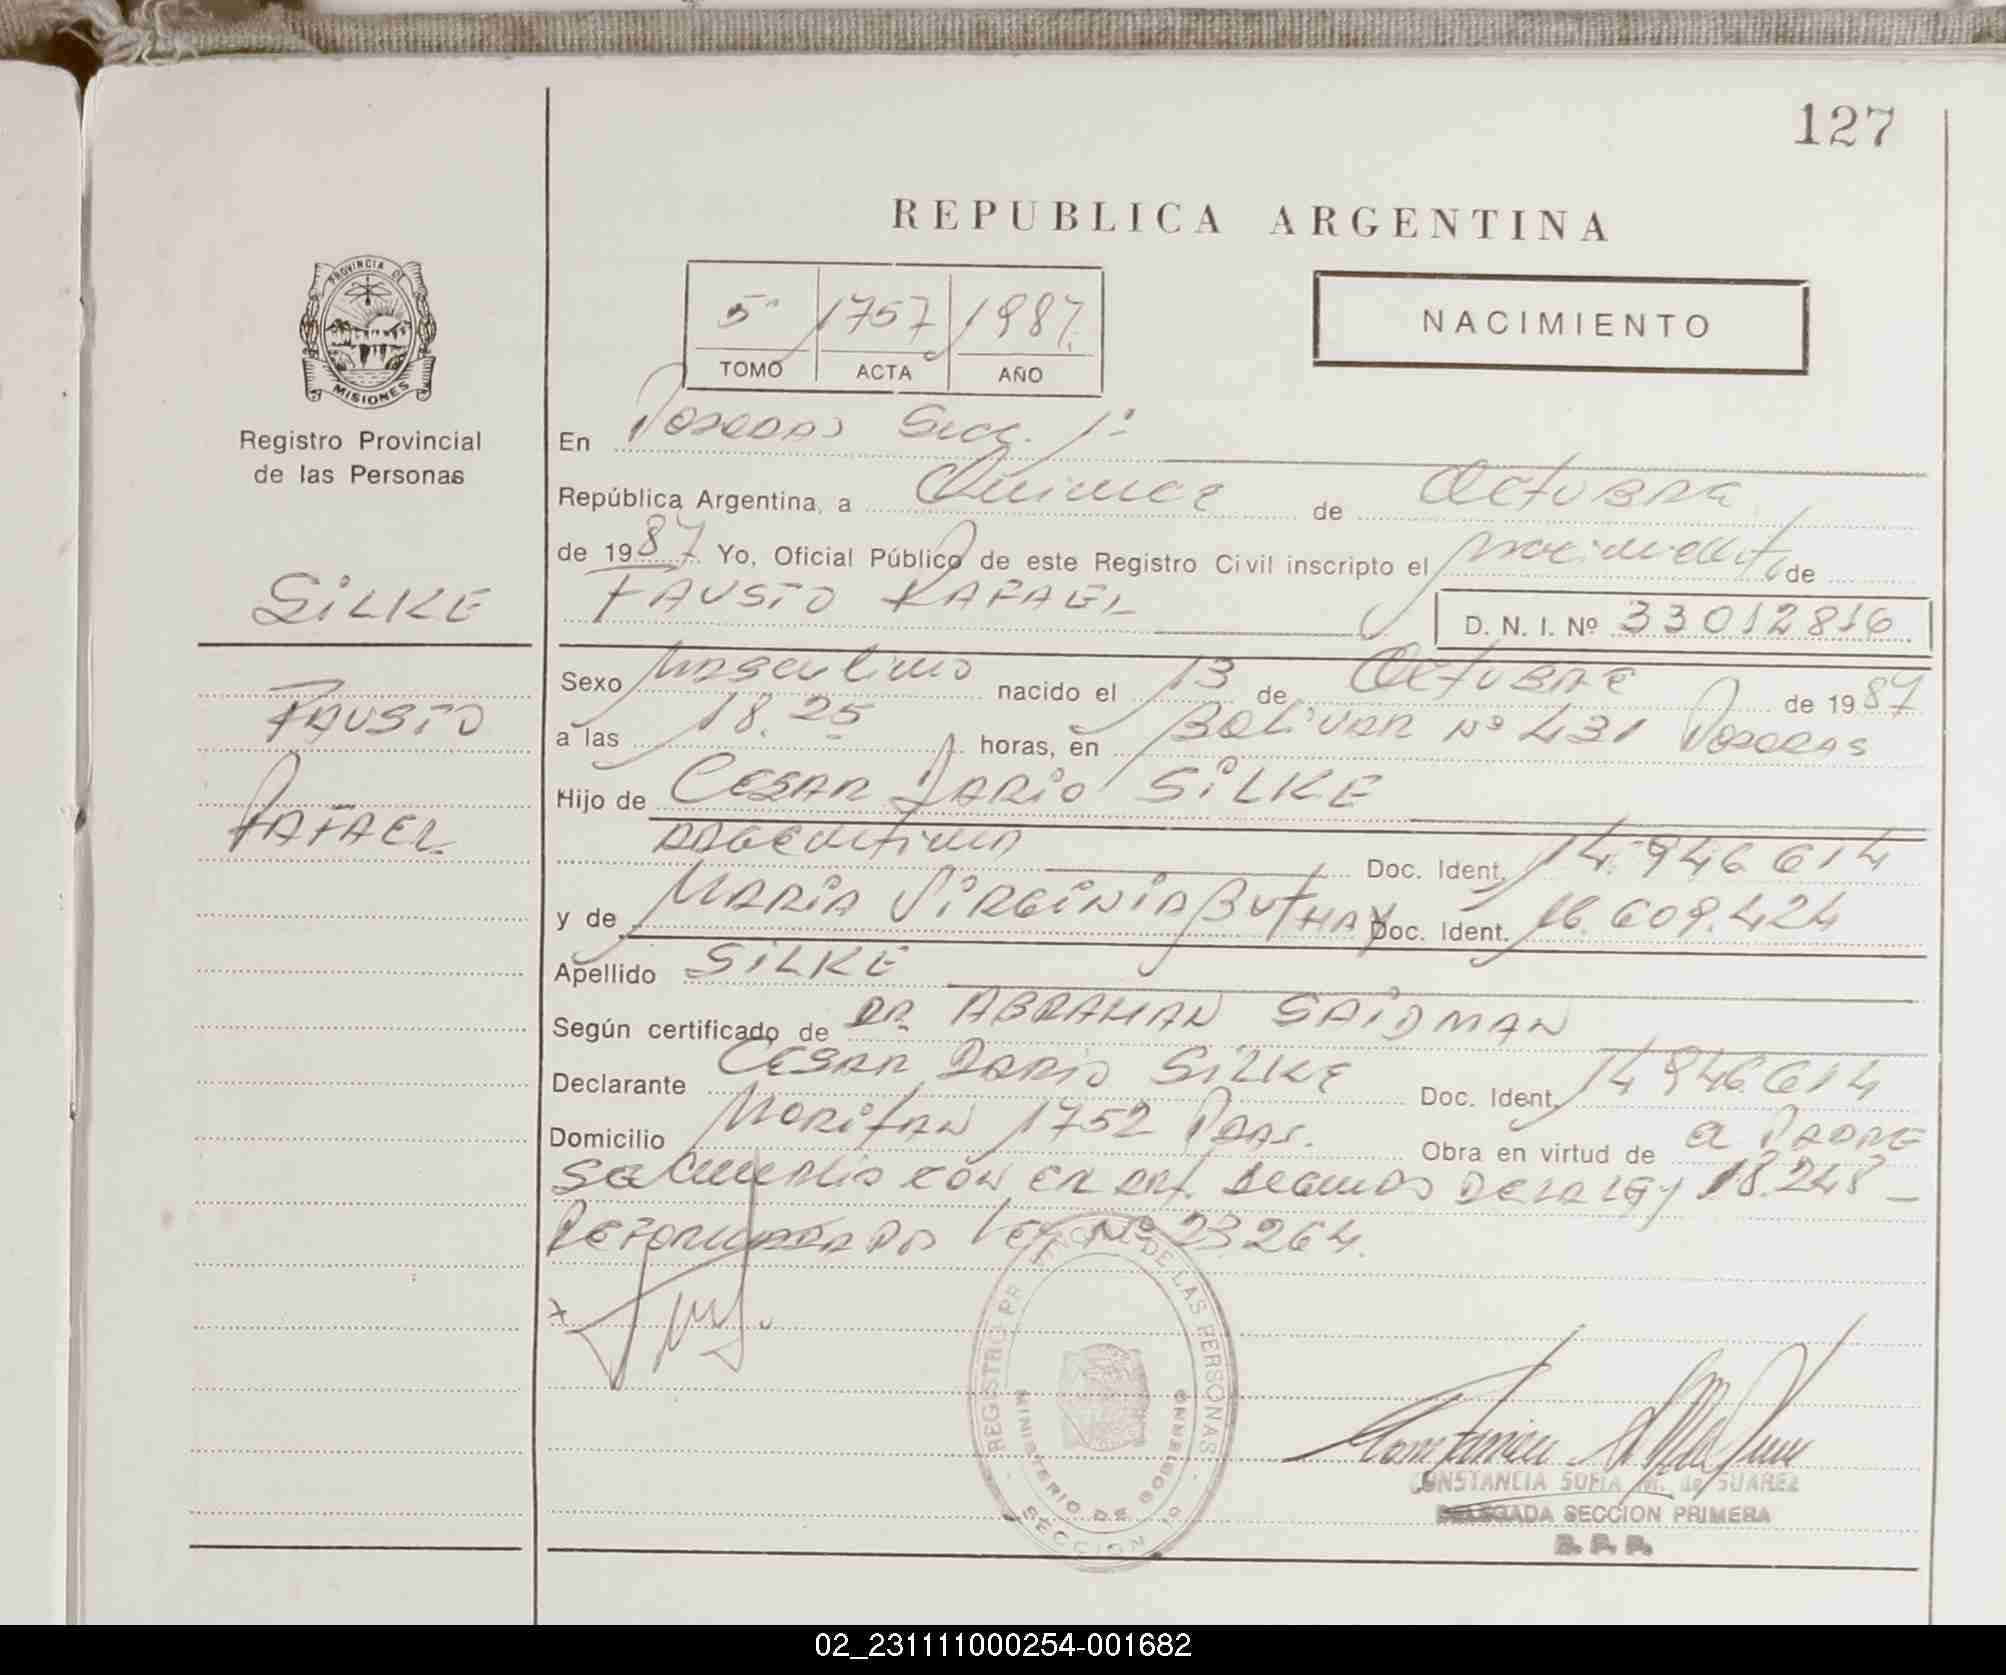 127
REPUBLICA ARGENTINA
5º 1757 1987.
TOMO ACTA AÑO
NACIMIENTO
PROVINCIA DE
MISIONES
Registro Provincial
de las Personas
SILKE
FAUSTO
RAFAEL
En Posadas Secc. 1ª
República Argentina, a Quince de Octubre
de 1987 Yo, Oficial Público de este Registro Civil inscripto el nacimiento de
FAUSTO RAFAEL D. N. I. Nº 33012816
Sexo Masculino nacido el 13 de Octubre de 1987
a las 18.25 horas, en Bolivar Nº 431 Posadas
Hijo de CESAR DARIO SILKE
argentino Doc. Ident. 14.946614
y de MARIA VIRGINIA BUTHAY Doc. Ident. 16.609.424
Apellido SILKE
Según certificado de DR. ABRAHAN SAIDMAN
Declarante CESAR DARIO SILKE Doc. Ident. 14946614
Domicilio 1752 Pdas. Obra en virtud de a PADRE
con el art. de la Ley 18.248 –
Ley Nº 23264.
REGISTRO PROVINCIAL DE LAS PERSONAS
MINISTERIO DE GOBIERNO
SECCION 1ª
CONSTANCIA SOFIA M. de SUAREZ
DELEGADA SECCION PRIMERA
R. P. P.
02_231111000254-001682